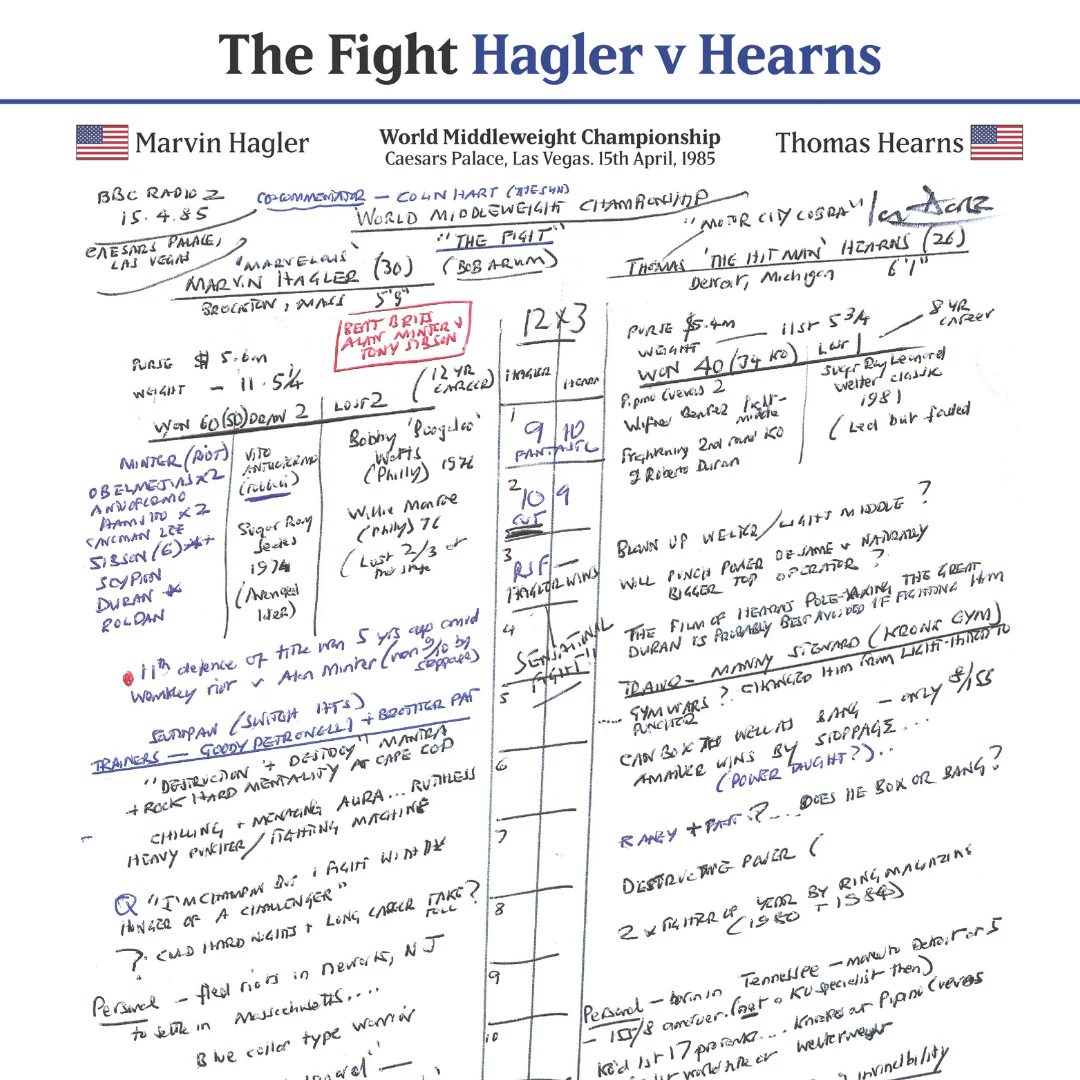 The Fight Hagler v Hearns
Marvin Hagler
World Middleweight Championship
Caesars Palace, Las Vegas. 15th April, 1985
Thomas Hearns
BBC RADIO 2
15.4.85
CAESARS PALACE,
LAS VEGAS
CO-COMMENTATOR — COLIN HART (THE SUN)
WORLD MIDDLEWEIGHT CHAMPIONSHIP
"THE FIGHT"
(BOB ARUM)
"MARVELOUS"
MARVIN HAGLER (30)
BROCKTON, MASS 5'9"
"MOTOR CITY COBRA"
THOMAS 'THE HIT MAN' HEARNS (26)
Detroit, Michigan 6'1"
BEAT BRITS
ALAN MINTER &
TONY SIBSON
PURSE $ 5.6m
WEIGHT — 11.5¼
(12 YR
CAREER)
WON 60 (50) DRAW 2 LOST 2
MINTER (RIOT)
OBELMEJIAS X2
ANTUOFERMO
HAMSHO X2
CAVEMAN LEE
SIBSON (6)
SCYPION
DURAN
ROLDAN
VITO
ANTUOFERMO
Sugar Ray
Seales
1974
(Avenged
later)
Bobby 'Boogaloo'
Watts
(Philly) 1976
Willie Monroe
(Philly) 76
(Lost 2/3 of
11th defence of title won 5 yrs ago amid
Wembley riot v Alan Minter (won 9/10 by
stoppage)
SOUTHPAW (SWITCH HITS)
TRAINERS — GOODY PETRONELLI + BROTHER PAT
"DESTRUCTION + DESTROY" MANTRA
+ ROCK HARD MENTALITY AT CAPE COD
CHILLING + MENACING AURA... RUTHLESS
HEAVY PUNCHER / FIGHTING MACHINE
Q "I'M CHAMPION BUT I FIGHT WITH THE
HUNGER OF A CHALLENGER"
? COULD HARD NIGHTS + LONG CAREER TAKE?
TOLL
Personal — fled riots in Newark, NJ
to settle in Massachusetts....
Blue collar type warrior
12 x 3
HAGLER HEARNS
1
9 10
FANTASTIC
2
10 9
CUT
3
RSF —
HAGLER WINS
4
SENSATIONAL
FIGHT!!
5
6
7
8
9
10
PURSE $5.4m
WEIGHT — 11st 5¾
8 YR
CAREER
WON 40 (34 KO) LOST 1
Pipino Cuevas 2
Wilfred Benitez light-
middle
Frightening 2nd round KO
of Roberto Duran
Sugar Ray Leonard
welter classic
1981
(Led but faded
BLOWN UP WELTER / LIGHT MIDDLE?
WILL PUNCH POWER BE SAME V NATURALLY
BIGGER TOP OPERATOR?
THE FILM OF HEARNS POLE-AXING THE GREAT
DURAN IS PROBABLY BEST AVOIDED IF FIGHTING HIM
TRAINER — MANNY STEWARD (KRONK GYM)
GYM WARS? CHANGED HIM FROM LIGHT-HITTER TO
PUNCHER
CAN BOX AS WELL AS BANG — ONLY 8/155
AMATEUR WINS BY STOPPAGE...
(POWER TAUGHT?)..
RANGY + FAST?... DOES HE BOX OR BANG?
DESTRUCTIVE POWER (
2 x FIGHTER OF YEAR BY RING MAGAZINE
(1980 + 1984)
Personal — born in Tennessee — move to Detroit at 5
— 155/8 amateur. (not a KO specialist then)
KO'd 1st 17 pro fights.... knocked out Pipino Cuevas
1st world title at welterweight
invincibility